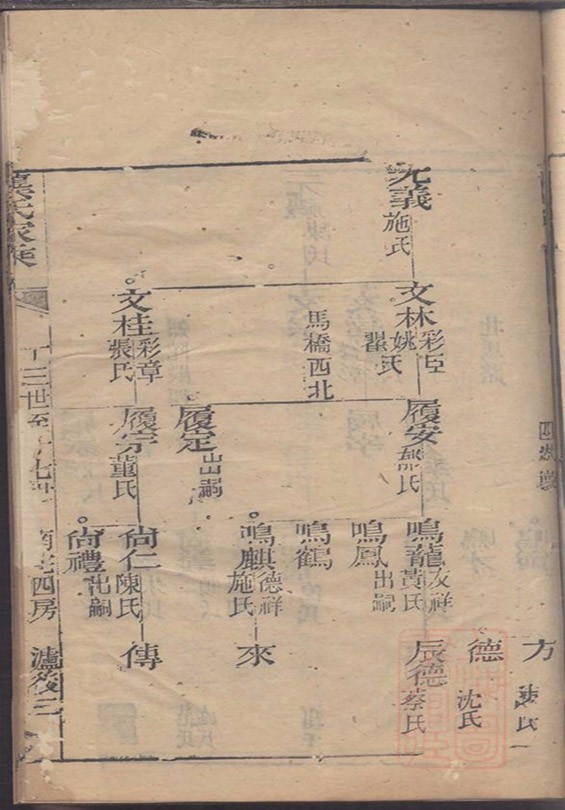 方
德
沈氏
允義
施氏
文林
彩臣
姚氏
翟氏
履安
鄒氏
鳴龍
友祥
黃氏
辰德
蔡氏
鳴鳳
出嗣
馬橋西北
鳴鶴
鳴麒
德祥
施氏
來
履定
出嗣
文桂
彩章
張氏
履宗
董氏
尙仁
陳氏
傳
尙禮
出嗣
氏家乘
十三世至十七世
四房
瀘後三